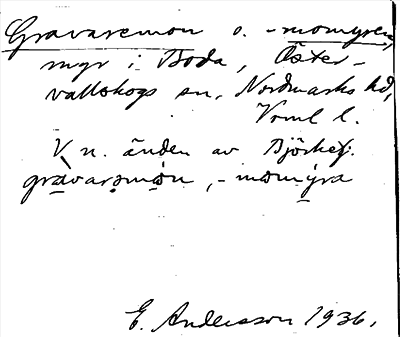 Gravaremon o. -momyren,
myr i Boda, Öster-
vallskogs sn, Nordmarks hd,
Vrml l.
V n. änden av Björkefj.
gràvarəmòn, -momýra
E. Andersson 1936.